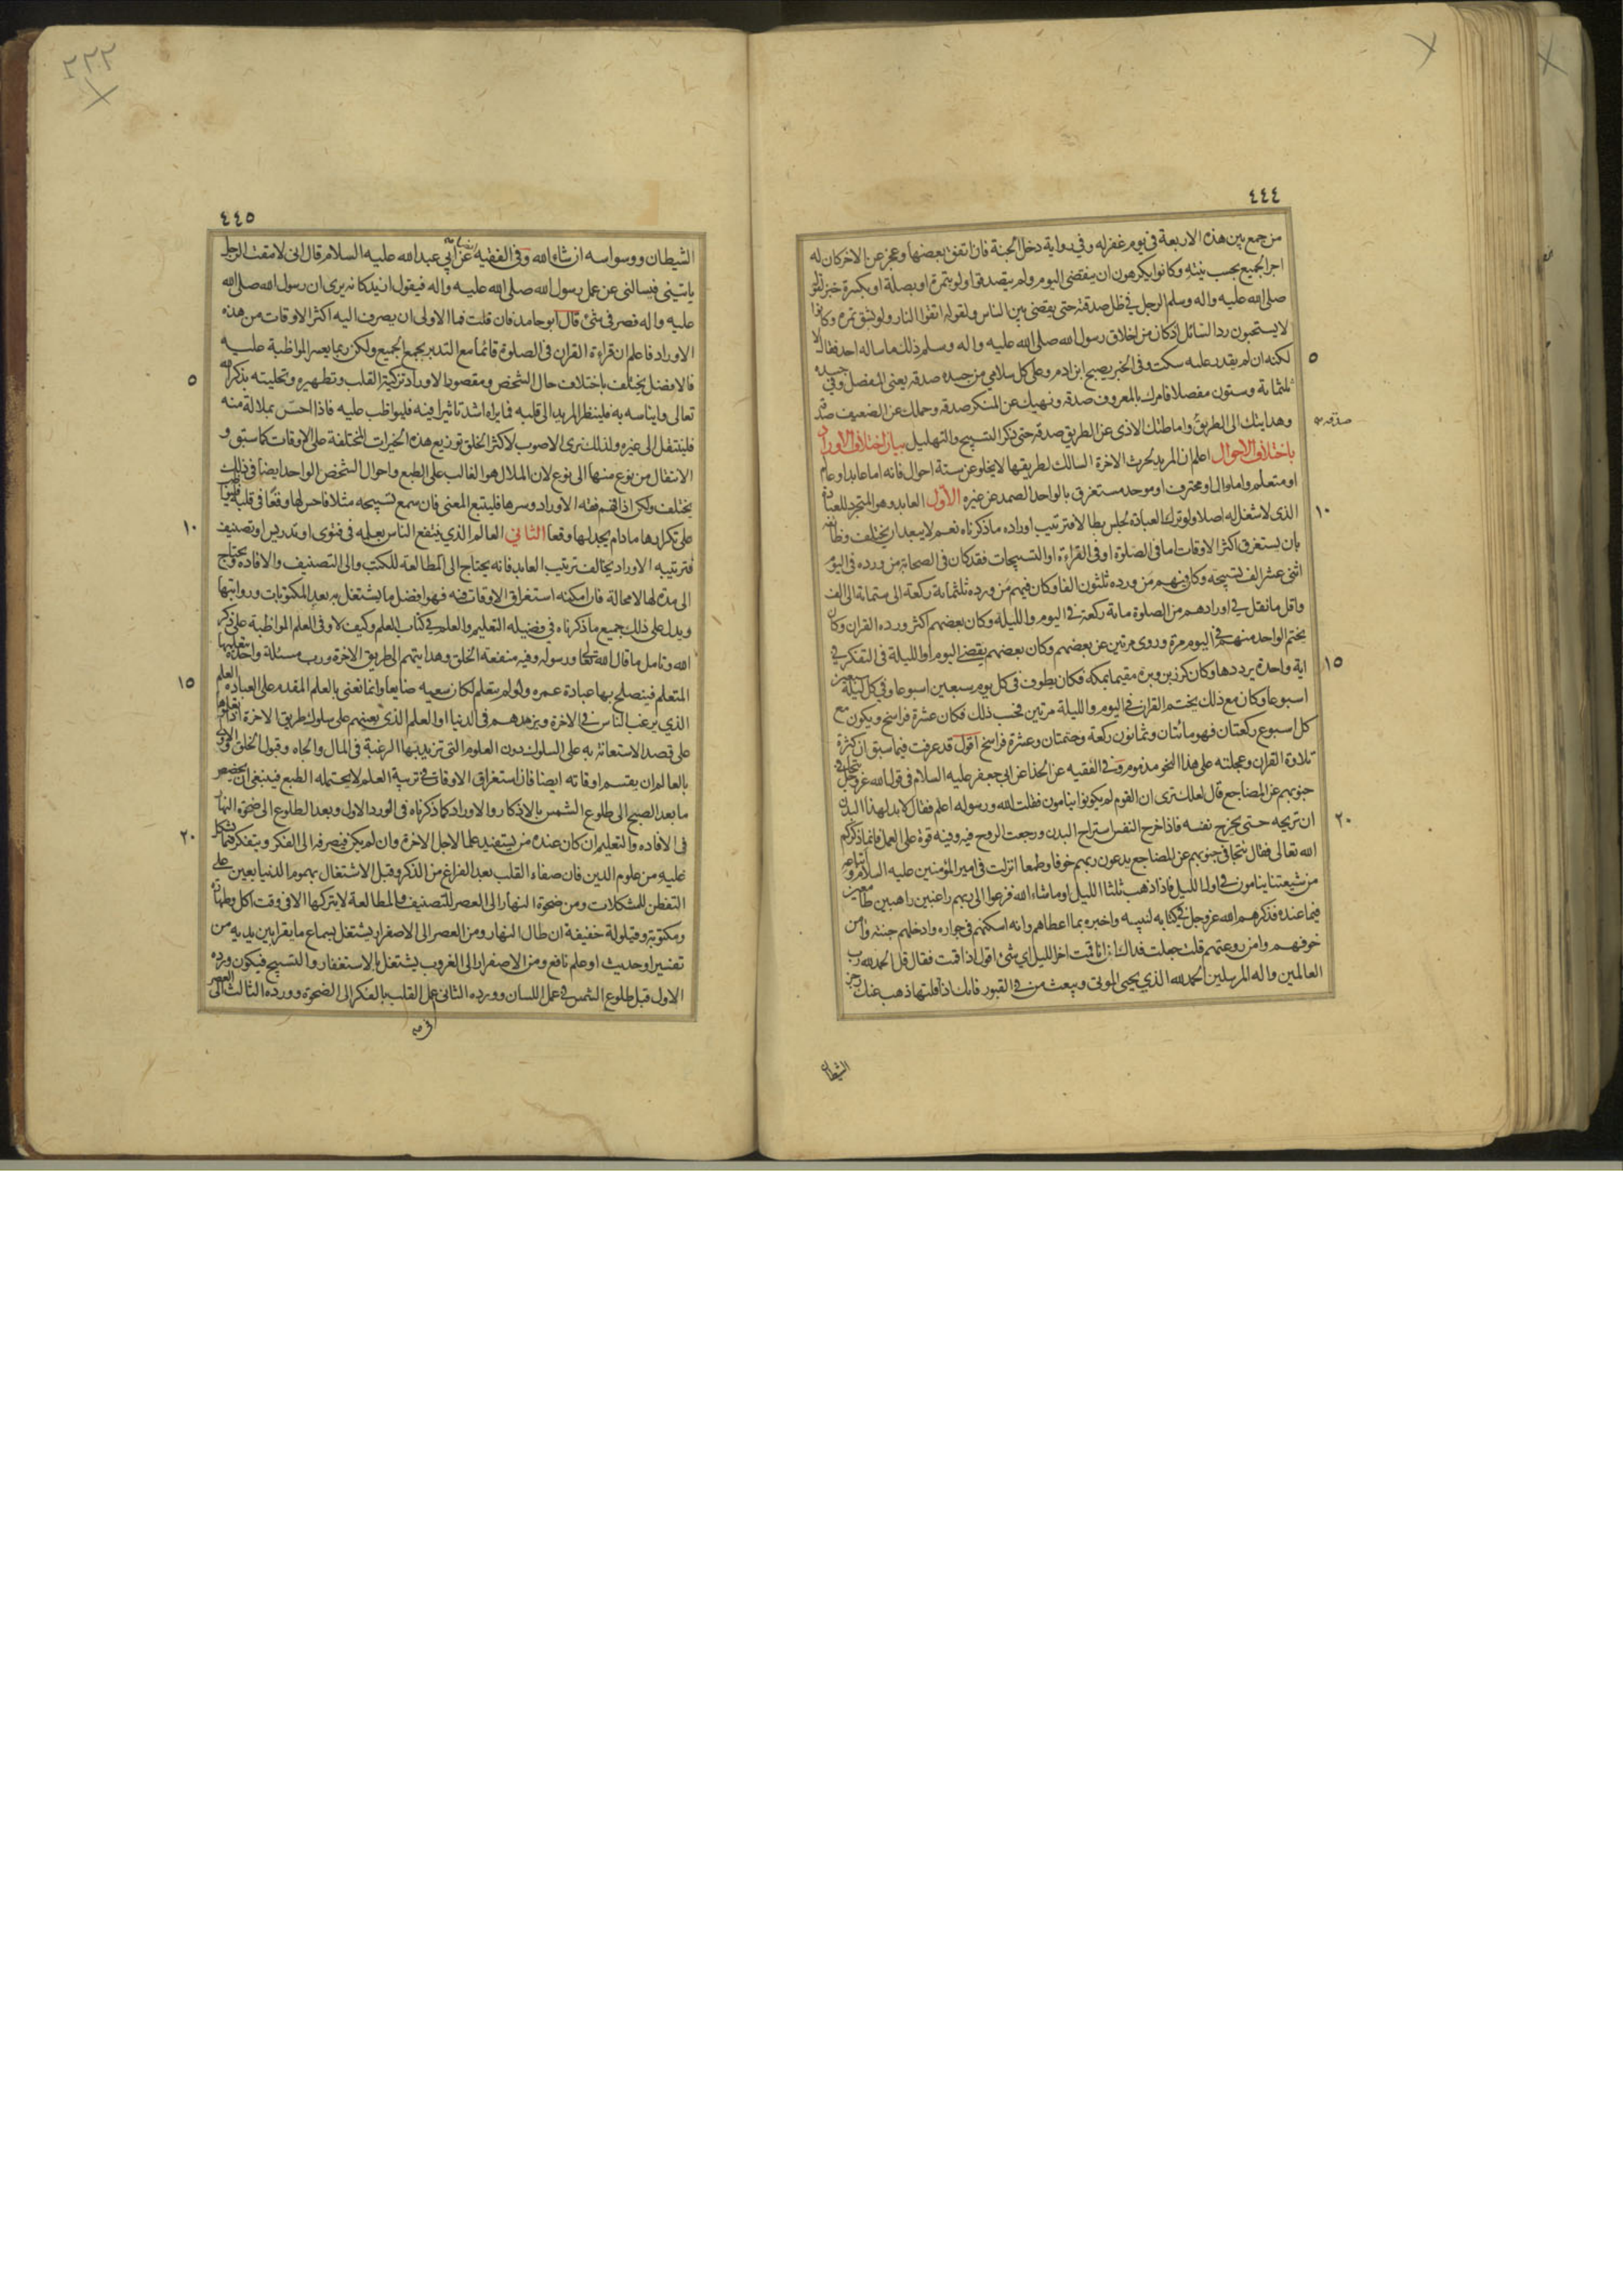 ٤٤٤
من جمع بين هذه الاربعة في يوم غفر له وفي رواية دخل الجنة فان اتفق بعضها وعجز عن الاخر كان له
اجر الجميع بحسب نيته وكانوا يكرهون ان ينقضي اليوم ولم يتصدقوا ولو بتمرة او بصلة او بكسرة خبز لقوله
صلى الله عليه واله وسلم الرجل في ظل صدقته حتى يقضى بين الناس ولقوله اتقوا النار ولو بشق تمرة وكانوا
لا يستحبون رد السائل اذ كان من اخلاق رسول الله صلى الله عليه واله وسلم ذلك ما ساله احد فقال لا
٥
لكنه ان لم يقدر عليه سكت وفى الخبر يصبح ابن ادم وعلى كل سلامي من جسده صدقة يعني المفصل وفي جسده
ثلثمائة وستون مفصلا فامرك بالمعروف صدقة ونهيك عن المنكر صدقة وحملك عن الضعيف صدقة
وهدايتك الى الطريق واماطتك الاذى عن الطريق صدقة حتى ذكر التسبيح والتهليل بيان اختلاف الاوراد
صدقة
باختلاف الاحوال اعلم ان المريد لحرث الاخرة السالك لطريقها لا يخلو عن ستة احوال فانه اما عابد او عالم
او متعلم واما وال او محترف او موحد مستغرق بالواحد الصمد عن غيره الاول العابد وهو المتجرد للعبادة
١٠
الذى لا شغل له اصلا ولو ترك العبادة لجلس بطالا فترتيب اوراده ما ذكرناه نعم لا يبعد ان يختلف وظائفه
بان يستغرق اكثر الاوقات اما في الصلوة او فى القراءة او التسبيحات فقد كان فى الصحابة من ورده فى اليوم
اثنى عشر الف تسبيحة وكان فيهم من ورده ثلثون الفا وكان فيهم من ورده ثلثمائة ركعة الى ستمائة الى الف
واقل ما نقل في اورادهم من الصلوة مائة ركعة في اليوم والليلة وكان بعضهم اكثر ورده القران وكان
يختم الواحد منهم في اليوم مرة وروى مرتين عن بعضهم وكان بعضهم يقضي اليوم او الليلة في التفكر في
١٥
اية واحدة يرددها وكان كرز بن وبرة مقيما بمكة فكان يطوف فى كل يوم سبعين اسبوعا وفي كل ليلة سبعين
اسبوعا وكان مع ذلك يختم القران في اليوم والليلة مرتين فحسب ذلك فكان عشرة فراسخ ويكون مع
كل اسبوع ركعتان فهو مائتان وثمانون ركعة وختمتان وعشرة فراسخ اقول قد عرفت فيما سبق ان كثرة
تلاوة القران وعجلته على هذا النحو مذموم وفي الفقيه عن الحذا عن ابي جعفر عليه السلام في قول الله عز وجل تتجافى
جنوبهم عن المضاجع قال لعلك ترى ان القوم لم يكونوا ينامون فقلت الله ورسوله اعلم فقال لا بد لهذا البدن
٢٠
ان تريحه حتى يخرج نفسه فاذا خرج النفس استراح البدن ورجعت الروح فيه وفيه قوة على العمل فانما ذكركم
الله تعالى فقال تتجافى جنوبهم عن المضاجع يدعون ربهم خوفا وطمعا انزلت في امير المؤمنين عليه السلام واتباعه
من شيعتنا ينامون في اول الليل فاذا ذهب ثلثا الليل او ما شاء الله فزعوا الى ربهم راغبين راهبين طامعين
فيما عنده فذكرهم الله عز وجل في كتابه لنبيه واخبره بما اعطاهم وانه اسكنهم في جواره وادخلهم جنته وامن
خوفهم وامن روعتهم قلت جعلت فداك ان انا قمت اخر الليل اي شئ اقول اذا قمت فقال قل الحمد لله رب
العالمين واله المرسلين الحمد لله الذي يحيي الموتى ويبعث من في القبور فانك اذا قلتها ذهب عنك رجز
الشيطان
٢٢٢
٤٤٥
الشيطان ووسواسه ان شاء الله وفى الفقيه ايضا عن ابي عبد الله عليه السلام قال انى لامقت الرجل
ياتيني فيسالنى عن عمل رسول الله صلى الله عليه واله فيقول ازيد كانه يرى ان رسول الله صلى الله
عليه واله قصر في شئ قال ابو حامد فان قلت فما الاولى ان يصرف اليه اكثر الاوقات من هذه
الاوراد فاعلم ان قراءة القران فى الصلوة قائما مع التدبر يجمع الجميع ولكن ربما يعسر المواظبة عليه
٥
فالافضل يختلف باختلاف حال الشخص ومقصود الاوراد تزكية القلب وتطهيره وتحليته بذكر الله
تعالى وايناسه به فلينظر المريد الى قلبه فما يراه اشد تاثيرا فيه فليواظب عليه فاذا احس بملالة منه
فلينتقل الى غيره ولذلك نرى الاصوب لاكثر الخلق توزيع هذه الخيرات المختلفة على الاوقات كما سبق و
الانتقال من نوع منها الى نوع لان الملال هو الغالب على الطبع واحوال الشخص الواحد ايضا في ذلك
يختلف ولكن اذا فهم فقه الاوراد وسرها فليتبع المعنى فان سمع تسبيحه مثلا فاحس لها وقعا في قلبه فليواظب
١٠
على تكرارها ما دام يجد لها وقعا الثاني العالم الذي ينتفع الناس بعلمه فى فتوى او تدريس او تصنيف
فترتيبه الاوراد يخالف ترتيب العابد فانه يحتاج الى المطالعة للكتب والى التصنيف والافادة ويحتاج
الى مدة لها لا محالة فان امكنه استغراق الاوقات فيه فهو افضل ما يشتغل به بعد المكتوبات ورواتبها
ويدل على ذلك جميع ما ذكرناه في فضيلة التعليم والعلم في كتاب العلم وكيف لا وفى العلم المواظبة على ذكر
الله وتامل ما قال الله تعالى ورسوله وفيه منفعة الخلق وهدايتهم الى طريق الاخرة ورب مسئلة واحدة يتعلمها
١٥
المتعلم فيصلح بها عبادة عمره ولو لم يتعلم لكان سعيه ضايعا وانما نعنى بالعلم المقدم على العبادة العلم
الذي يرغب الناس في الاخرة ويزهدهم في الدنيا او العلم الذي يعينهم على سلوك طريق الاخرة اذا تعلموه
على قصد الاستعانة به على السلوك دون العلوم التى تزيد بها الرغبة فى المال والجاه وقبول الخلق والاولى
بالعالم ان يقسم اوقاته ايضا فان استغراق الاوقات في تربية العلم لا يحتمله الطبع فينبغى ان يخصص
ما بعد الصبح الى طلوع الشمس بالاذكار والاوراد كما ذكرناه في الورد الاول وبعد الطلوع الى ضحوة النهار
٢٠
في الافادة والتعليم ان كان عنده من يستفيد علما لاجل الاخرة وان لم يكن فيصرفه الى الفكر ويتفكر فيما يشكل
عليه من علوم الدين فان صفاء القلب بعد الفراغ من الذكر وقبل الاشتغال بهموم الدنيا يعين على
التفطن للمشكلات ومن ضحوة النهار الى العصر للتصنيف والمطالعة لا يتركها الا فى وقت اكل وطهارة
ومكتوبة وقيلولة خفيفة ان طال النهار ومن العصر الى الاصفرار يشتغل بسماع ما يقرا بين يديه من
تفسير او حديث او علم نافع ومن الاصفرار الى الغروب يشتغل بالاستغفار والتسبيح فيكون ورده
الاول قبل طلوع الشمس في عمل اللسان وورده الثانى في عمل القلب بالفكر الى الضحوة وورده الثالث الى العصر